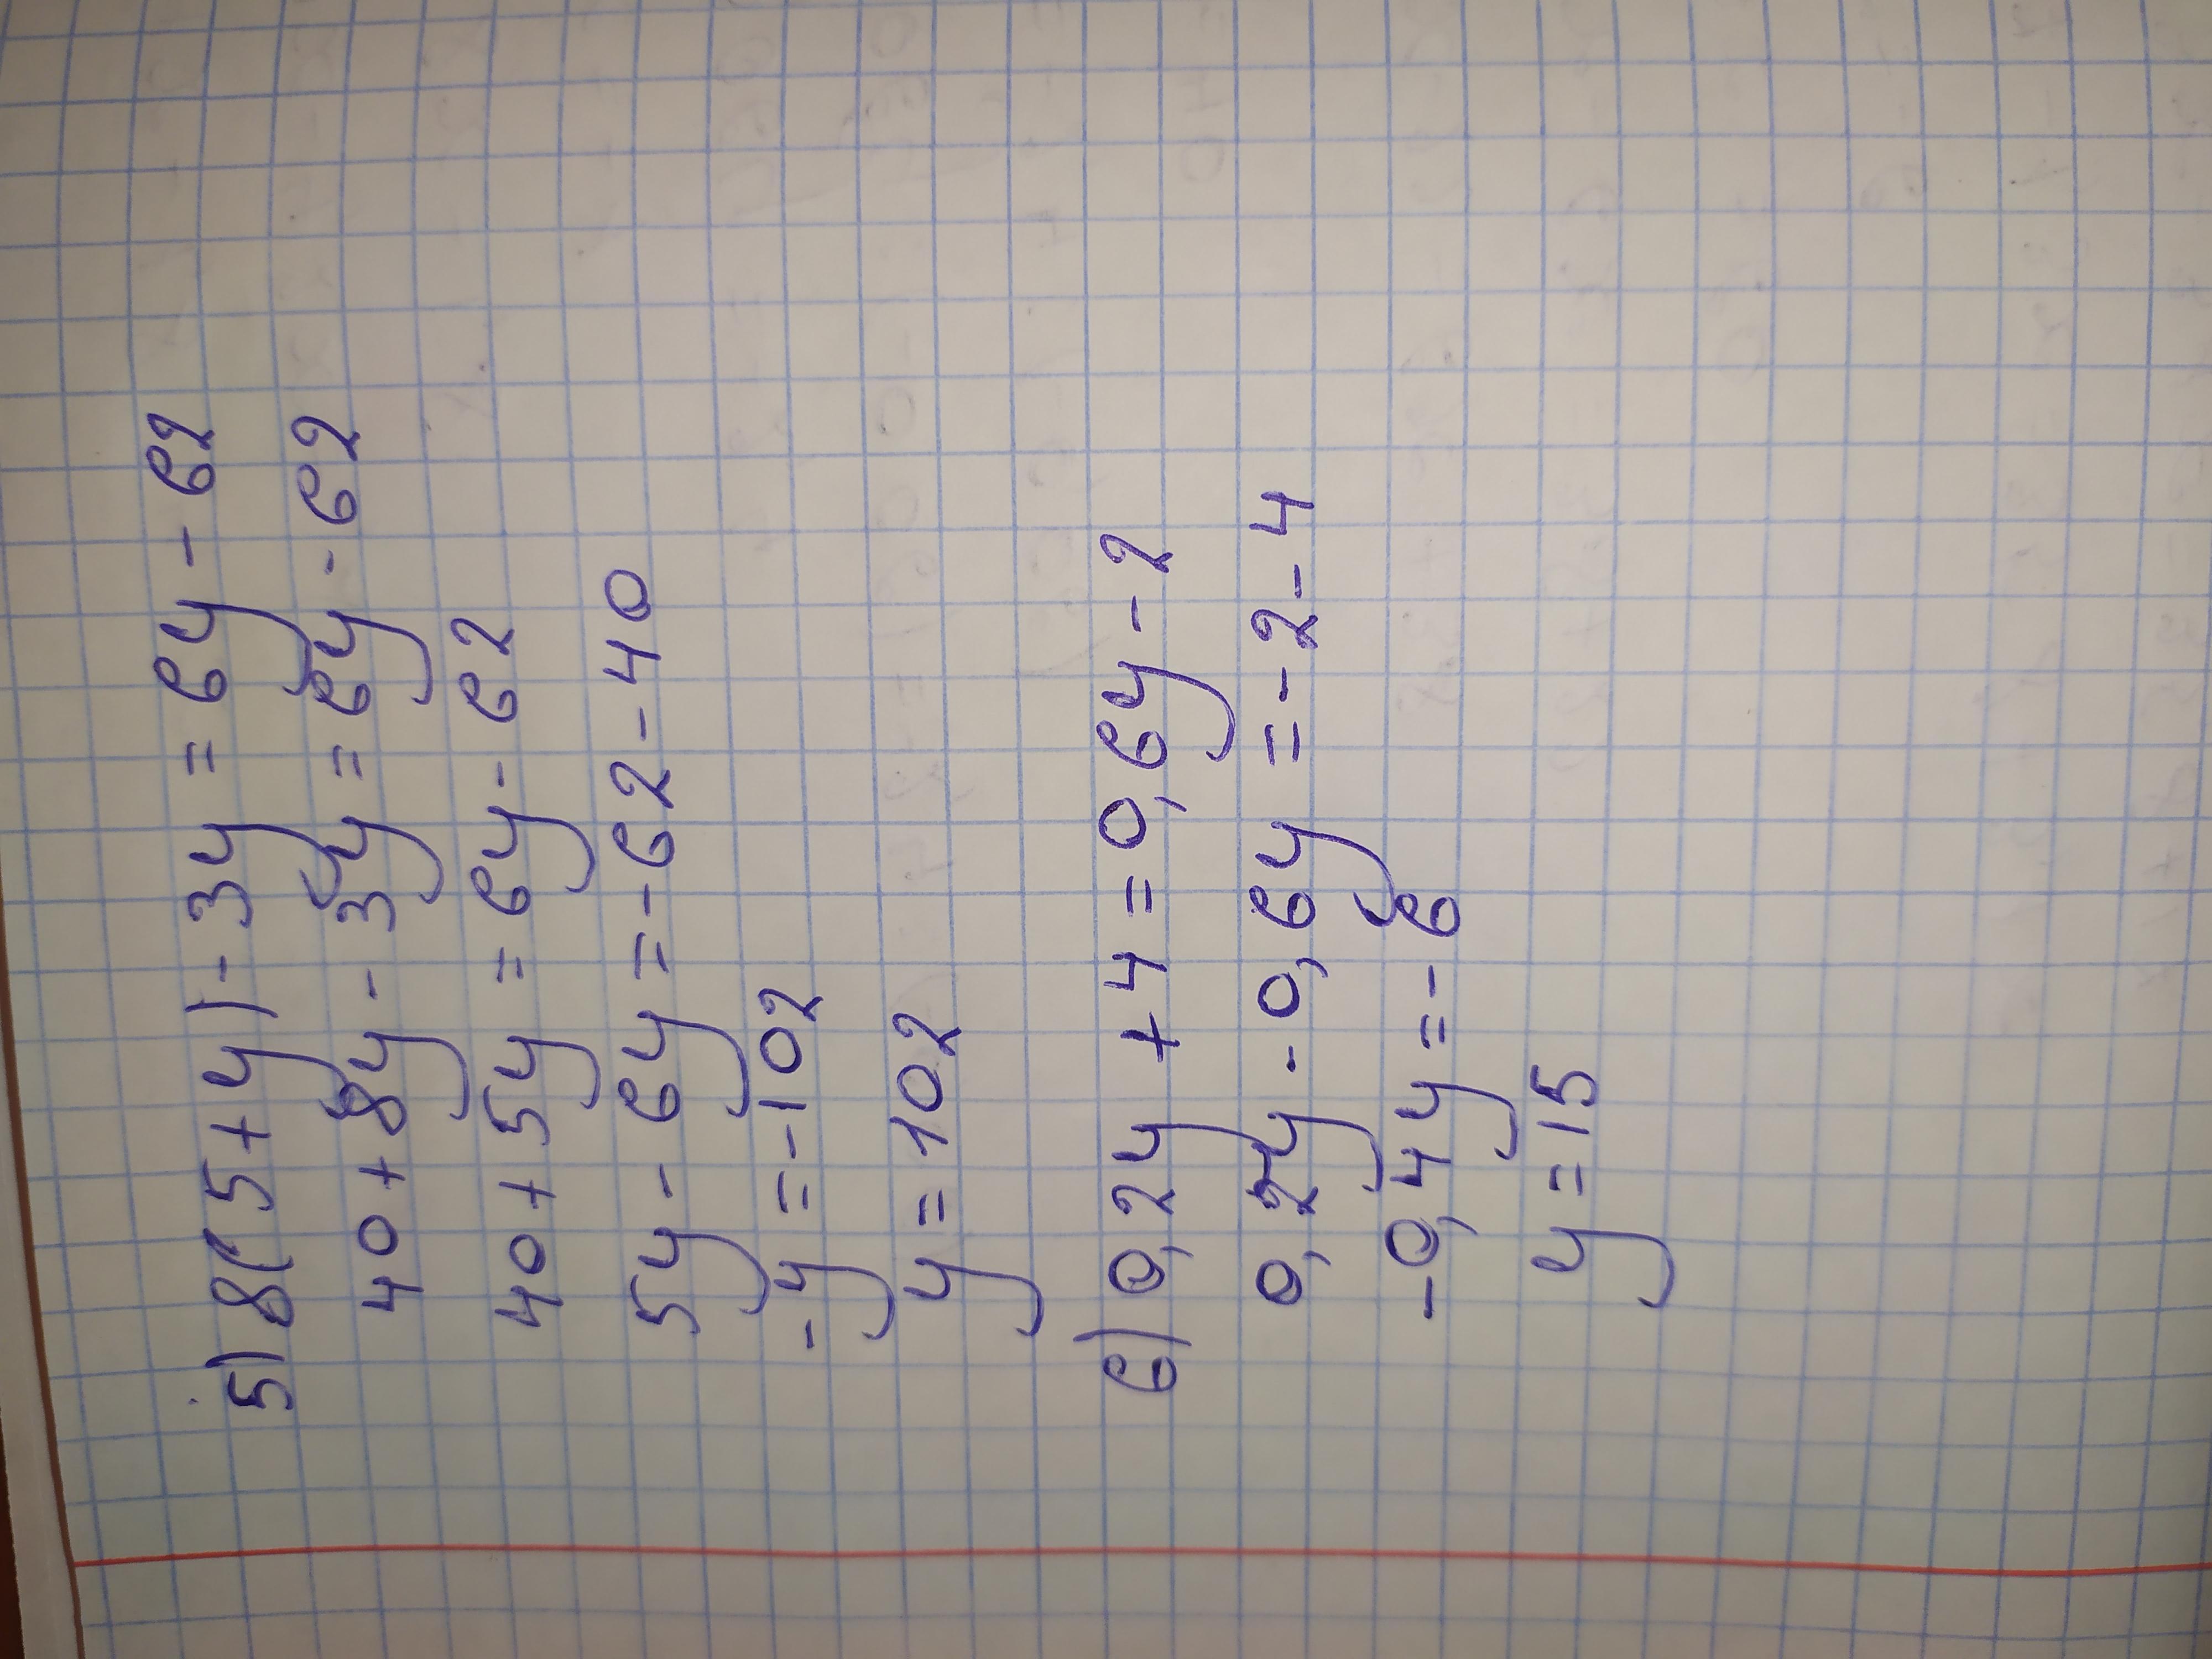 5) 8(5+y)-3y=6y-62
40+8y-3y=6y-62
40+5y=6y-62
5y-6y=-62-40
-y=-102
y=102
6) 0,2y+4=0,6y-2
0,2y-0,6y=-2-4
-0,4y=-6
y=15